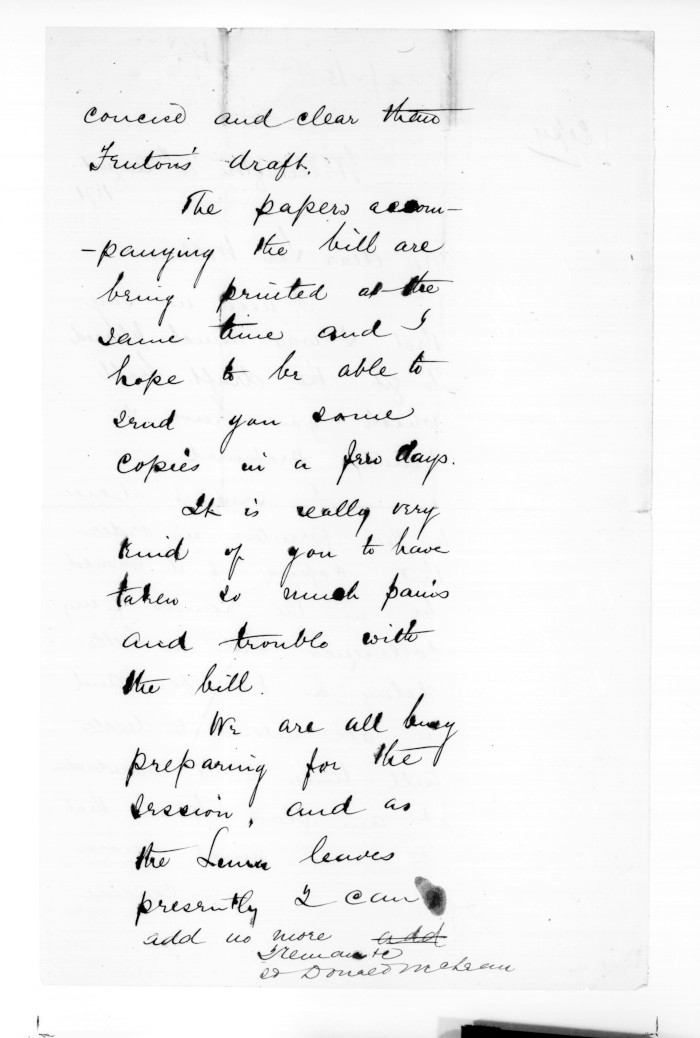 concise and clear than
Fenton's draft.
The papers accom-
-panying the bill are
being printed at the
same time and I
hope to be able to
send you some
copies in a few days.
It is really very
kind of you to have
taken so much pains
and trouble with
the bill.
We are all busy
preparing for the
session, and as
the Luna leaves
presently I can
add no more add
I remain &c
Donald McLean